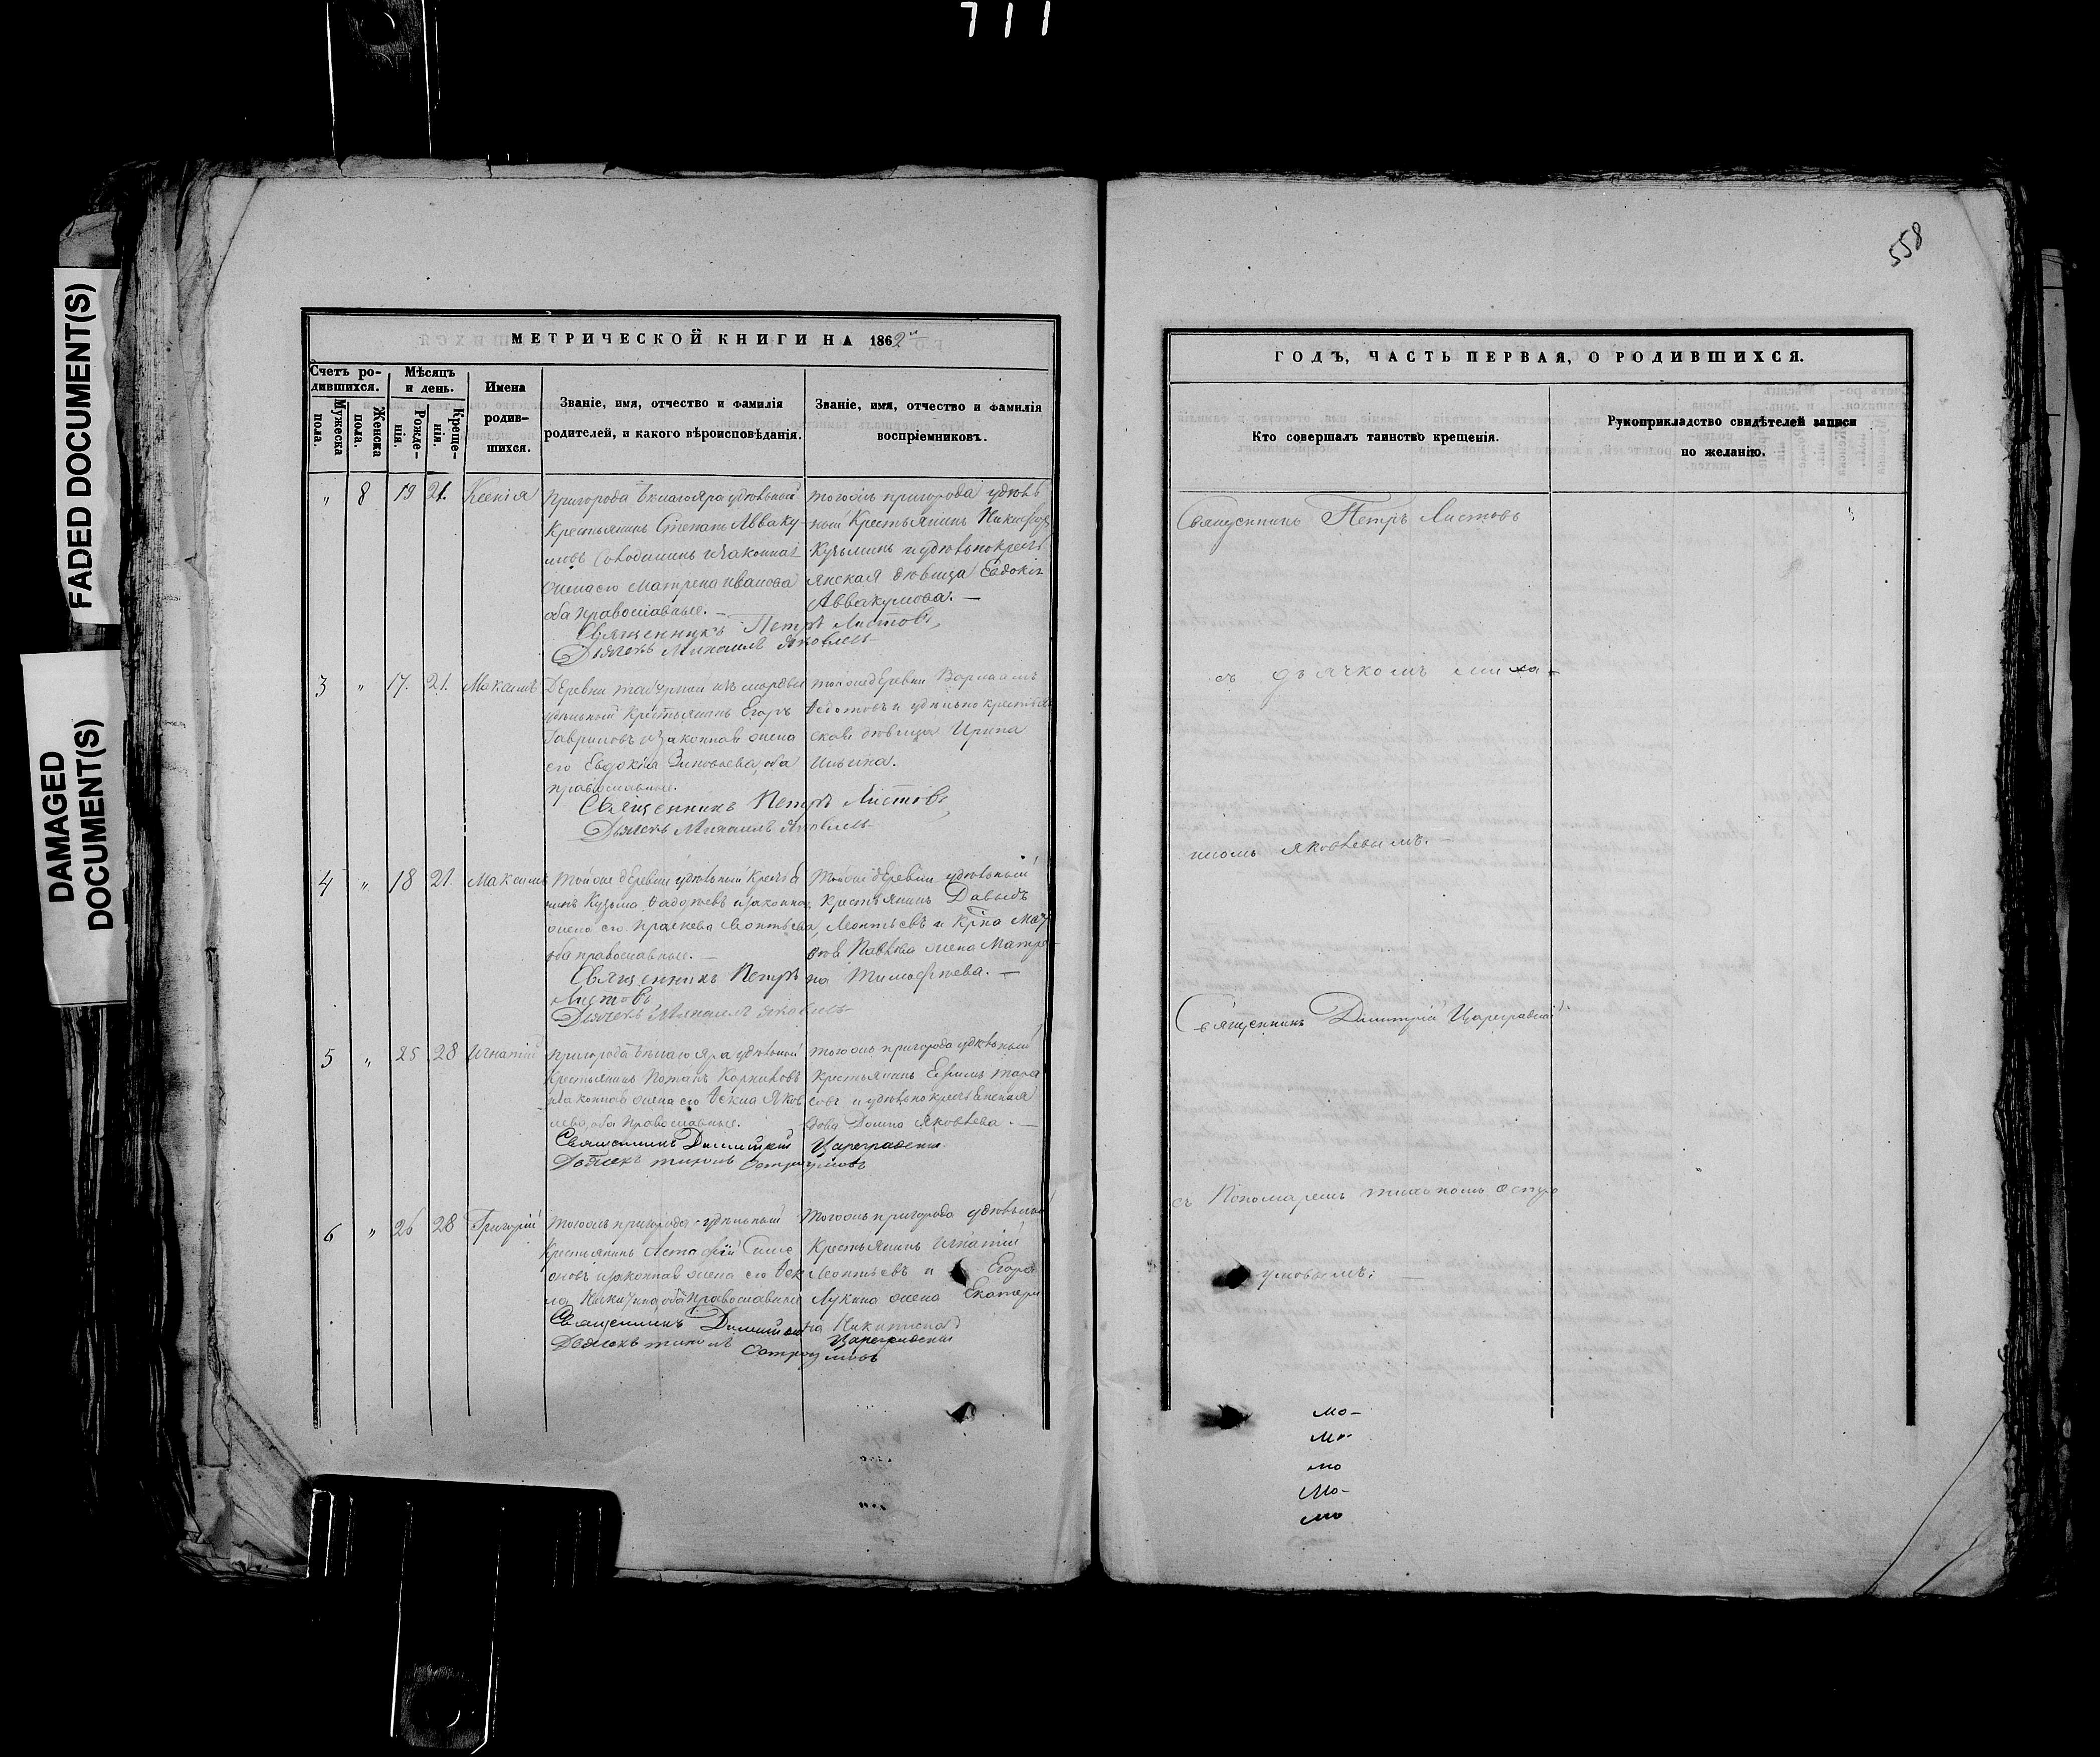 711
FADED DOCUMENT(S)
DAMAGED
DOCUMENT(S)
558
МЕТРИЧЕСКОЙ КНИГИ НА 1862й
Счетъ ро-
дившихся.
Мужеска
пола.
Женска
пола.
Мѣсяцъ
и день.
Рожде-
нія.
Креще-
нія.
Имена
родив-
шихся.
Званіе, имя, отчество и фамилія
родителей, и какого вѣроисповѣданія.
Званіе, имя, отчество и фамилія
воспріемниковъ.
„ 8 19 21. Ксенія
Пригорода Бѣлаго Яра удѣльный
Крестьянинъ Степанъ Авваку-
мовъ и законная
жена его Матрена Иванова
оба православные. —
Священникъ Петръ Листовъ,
Дьячекъ Михаилъ Яковлевъ
тогожъ пригорода удѣль
ный Крестьянинъ Никифоръ
Кузьминъ и удѣльнокресть
янская дѣвица Евдокія
Аввакумова. —
3 „ 17. 21. Максимъ
Деревни
удѣльный Крестьянинъ Егоръ
Гавриловъ и законная жена
его Евдокія Зиновьева, оба
православные.
Священникъ Петръ Листовъ,
Дьячекъ Михаилъ Яковлевъ
тойже деревни
и удѣльно крестья
ская дѣвица Ирина
Ильина.
4 „ 18 21. Максимъ
Той же деревни удѣльный Крестья
нинъ Кузьма и законная
жена его Прасковья Леонтьева,
оба православные. —
Священникъ Петръ
Листовъ
Дьячекъ Михаилъ Яковлевъ
Той же деревни удѣльный
Крестьянинъ Давыдъ
Леонтьевъ и
жена Матре-
на Тимофѣева. —
5 „ 25 28 Игнатій
Пригорода Бѣлаго Яра удѣльный
Крестьянинъ Потапъ
законная жена его Яков
лева, оба Православные.
Священникъ Димитрій Цареградскій
Дьячекъ Тихонъ Остроумовъ
Тогожъ пригорода удѣльный
Крестьянинъ Ефимъ Тара
совъ и удѣльнокрестьянская
вдова Домна Яковлева. —
6 „ 26 28 Григорій
Тогожъ пригорода удѣльный
Крестьянинъ
законная жена его
Никитина, оба Православные
Священникъ Димитрій Цареградскій
Дьячекъ Тихонъ Остроумовъ
Тогожъ пригорода удѣльный
Крестьянинъ Игнатій
Леонтьевъ и Егора
Лукина жена Екатери
на Никитина
ГОДЪ, ЧАСТЬ ПЕРВАЯ, О РОДИВШИХСЯ.
Кто совершалъ таинство крещенія.
Рукоприкладство свидѣтелей записи
по желанію.
Священникъ Петръ Листовъ
съ дьячкомъ Миха-
иломъ Яковлевымъ. —
Священникъ Димитрій Цареградскій
съ Пономаремъ Тихономъ Остро
умовымъ; —
мо-
мо-
мо
мо-
мо